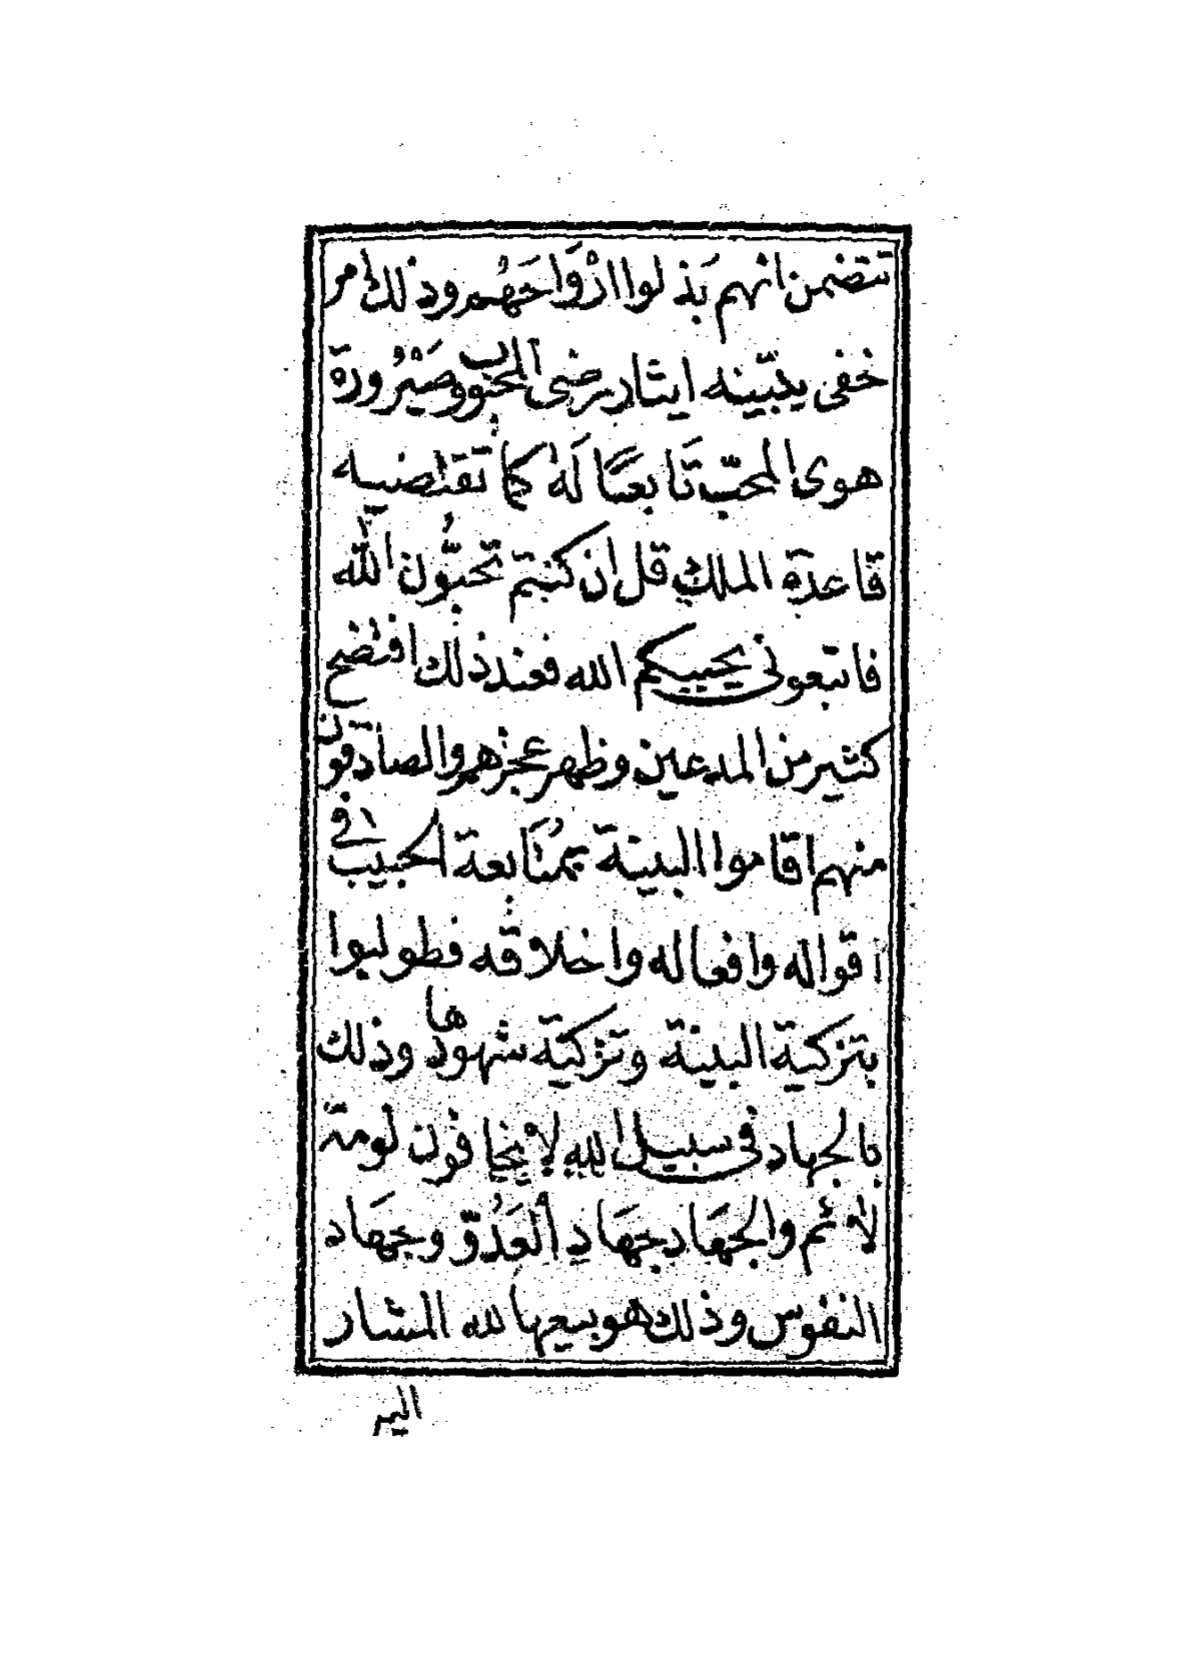 تتضمن انهم بَذلوا ارْوَاحَهُم وذلك امر
خفى يتبّينه ايثار رضى المحبوب وصَيْرُورة
هوى المحبّ تَابعًا لَهُ كما تَقتضيه
قاعدة الملك قل ان كنتم تحبُّون اللّه
فاتبعونى يحببكم الله فعند ذلك افتضح
كثير من المدعين وظهر عجزهم والصادقون
منهم اقاموا البينة بمُتَابعة الحبيب في
اقواله وافعاله واخلاقه فطولبوا
بتزكية البينة وتزكية شهودها وذلك
بالجهاد فى سبيل الله لا يخافون لومة
لائم والجهَاد جهَاد العَدُوّ وجهَاد
النفوس وذلك هو بيعها لله المشار
اليه